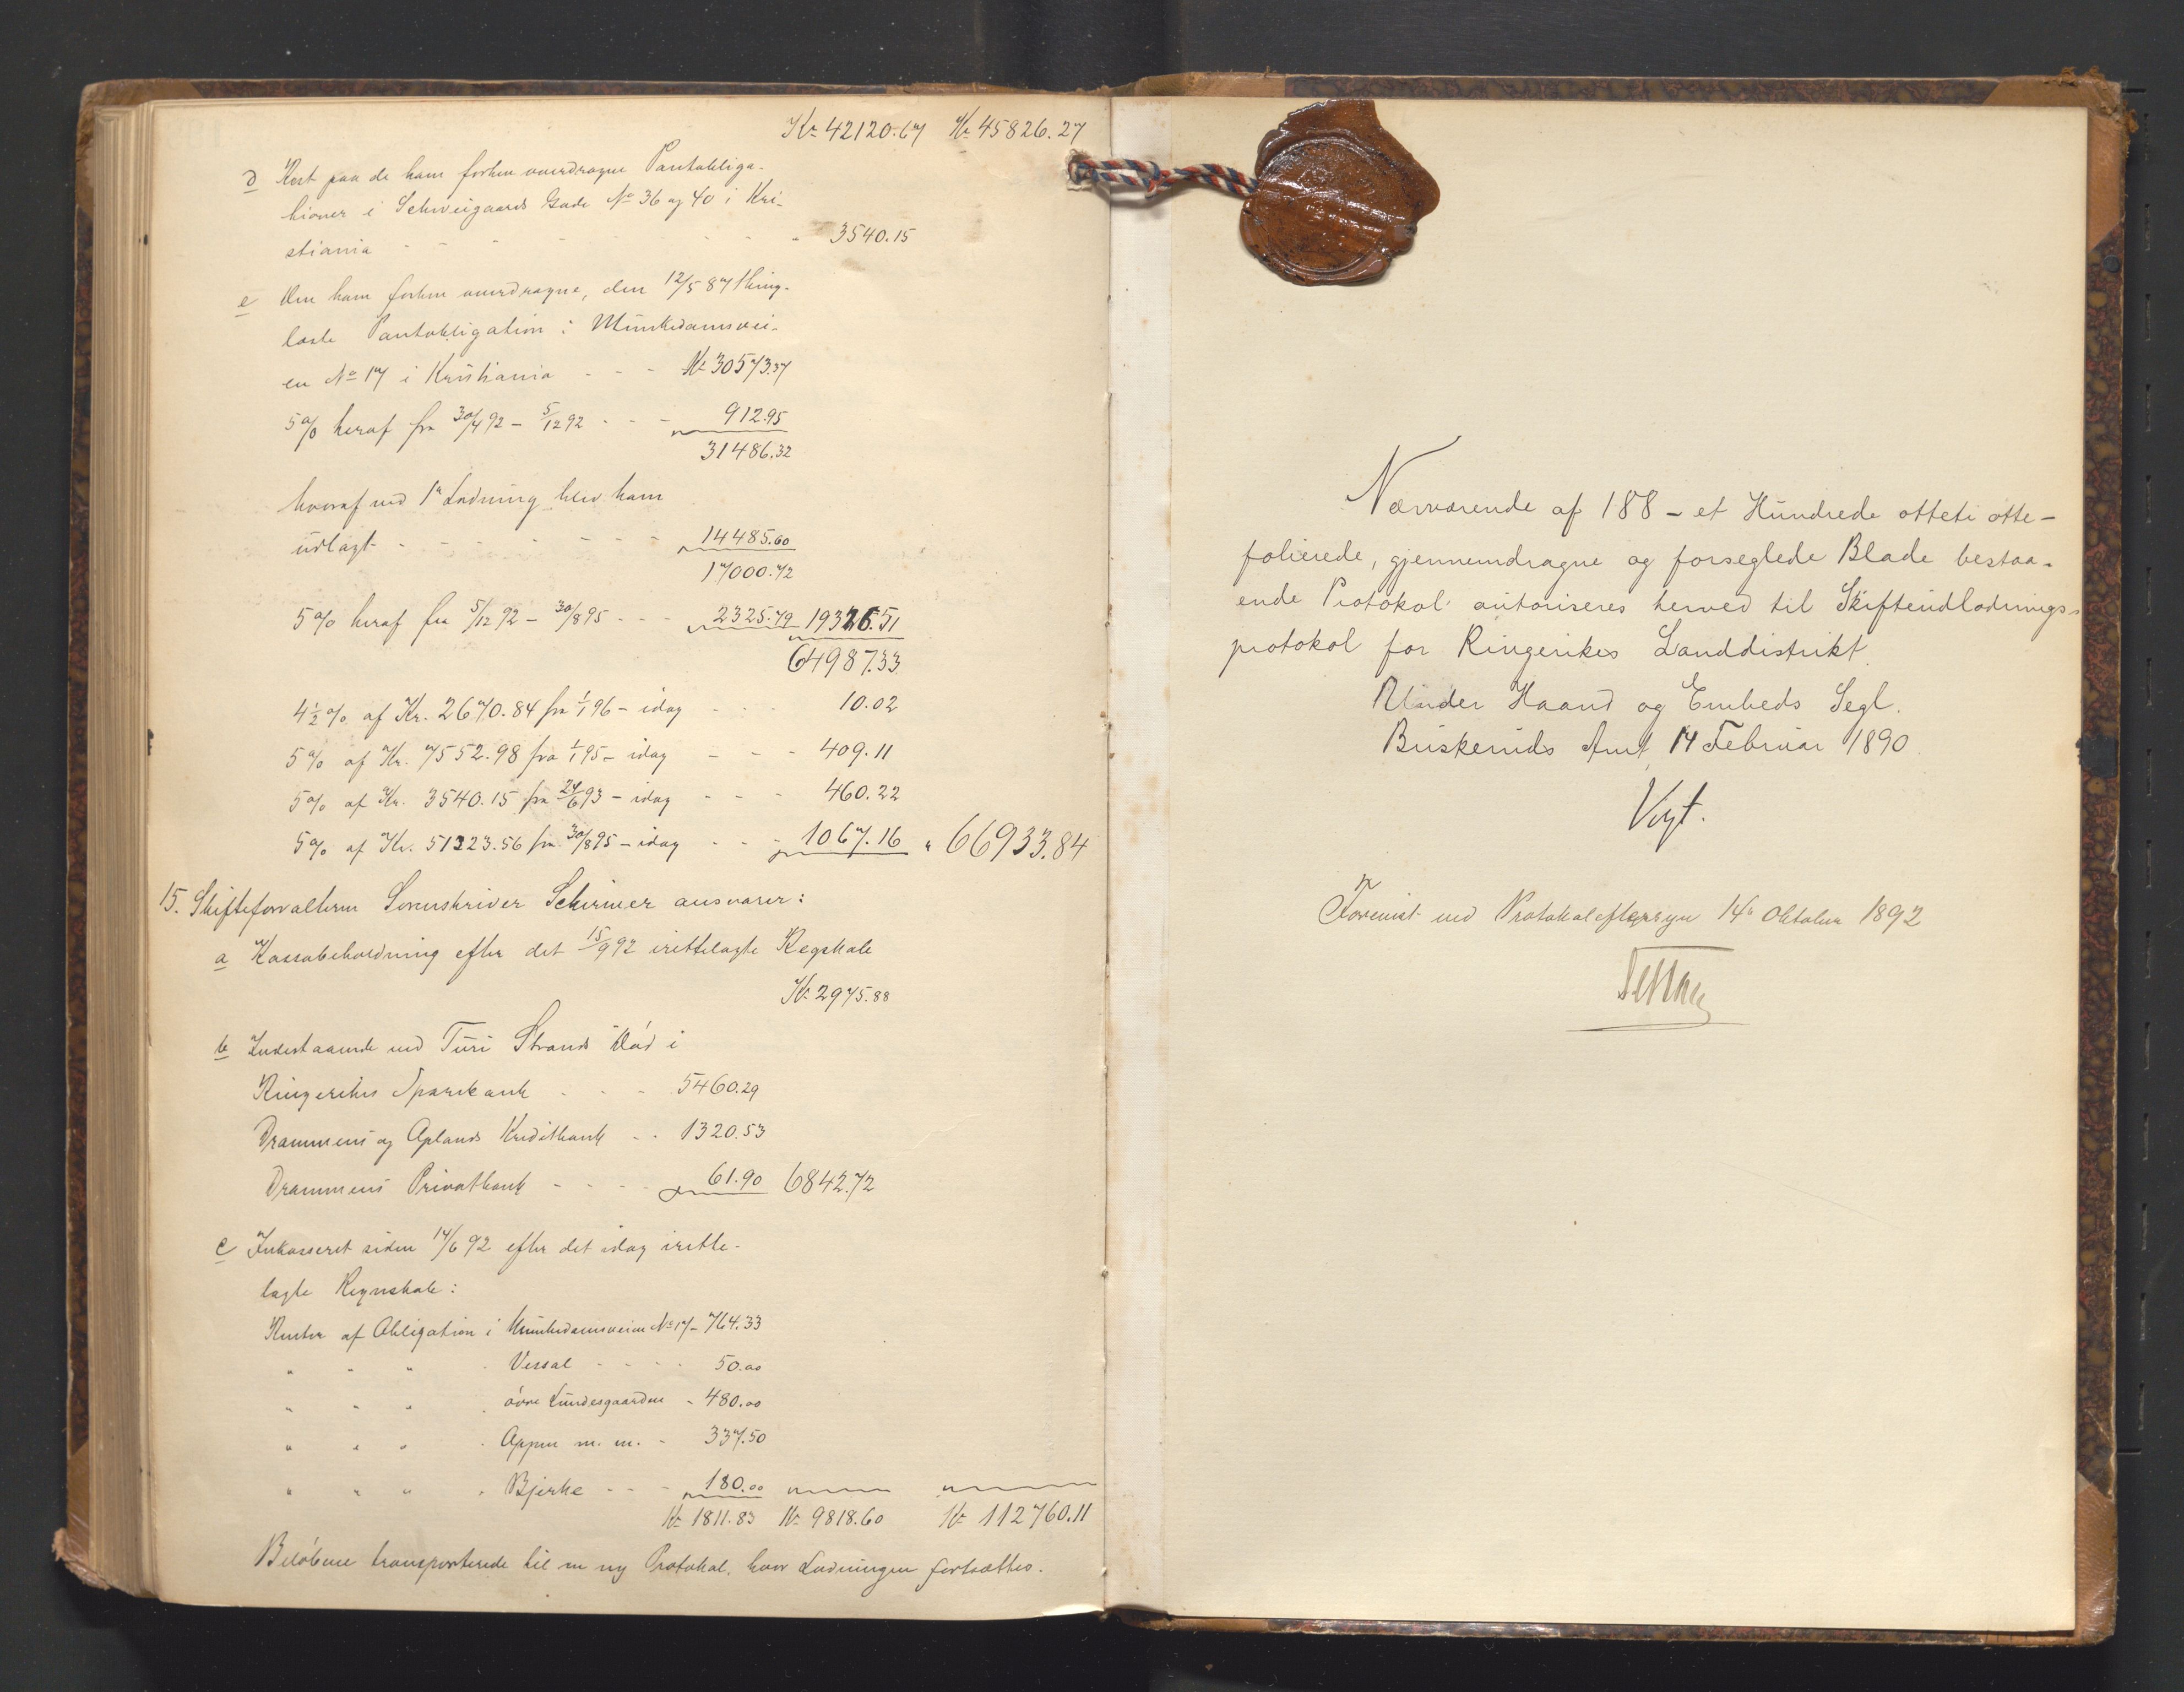 Kr 42120.67 Kr 45826.27
d Rest paa de ham forhen overdragne Pantobliga-
tioner i Schweigaards Gade No 36 og 40 i Kri-
stiania - - - - - - - 3540.15
e Den ham forhen overdragne, den 12/5 87 thing-
læste Pantobligation i Munkedamsvei-
en No 17 i Kristiania - - - Kr 30573.37
5 % heraf fra 30/4 92 - 5/12 92 - - - 912.95
31486.32
hvoraf ved 1ste Lodning blev ham
udlagt - - - - - - - 14485.60
17000.72
5 % heraf fra 5/12 92 - 30/8 95 - - - 2325.79 19326.51
64987.33
4 1/2 % af Kr. 2670.84 fra 1/1 96 - idag - - - 10.02
5 % af Kr. 7552.98 fra 1/1 95 - idag - - - 409.11
5 % af Kr. 3540.15 fra 24/6 93 - idag - - - 460.22
5 % af Kr. 51223.56 fra 30/8 95 - idag - - - 1067.16 " 66933.84
15. Skifteforvalteren Sorenskriver Schirmer ansvarer:
a Kassabeholdning efter det 15/9 92 irettelagte Regskab
Kr 2975.88
b Indestaaende ved Turi Strands Død i
Ringerikes Sparebank - - - 5460.29
Drammens og Oplands Kreditbank - - 1320.53
Drammens Privatbank - - - - 61.90 6842.72
c Inkasseret siden 17/6 92 efter det idag irette-
lagte Regnskab:
Renter af Obligation i Munkedamsveien No 17 - 764.33
" " " " Vessal - - - - 50.00
" " " " øvre Lundesgaarden - 480.00
" " " " Oppen m. m. - 337.50
" " " " Bjerke - - - 180.00
Kr 1811.83 Kr 9818.60 Kr 112760.11
Beløbene transporterede til en ny Protokol, hvor Lodningen fortsættes.
Nærværende af 188 - et Hundrede otteti otte -
folierede, gjennemdragne og forseglede Blade bestaa-
ende Protokol autoriseres herved til Skifteudlodnings-
protokol for Ringerikes Landdistrikt.
Under Haand og Embeds Segl.
Buskeruds Amt, 14 Februar 1890.
Vogt.
Forevist ved Protokoleftersyn 14de Oktober 1892